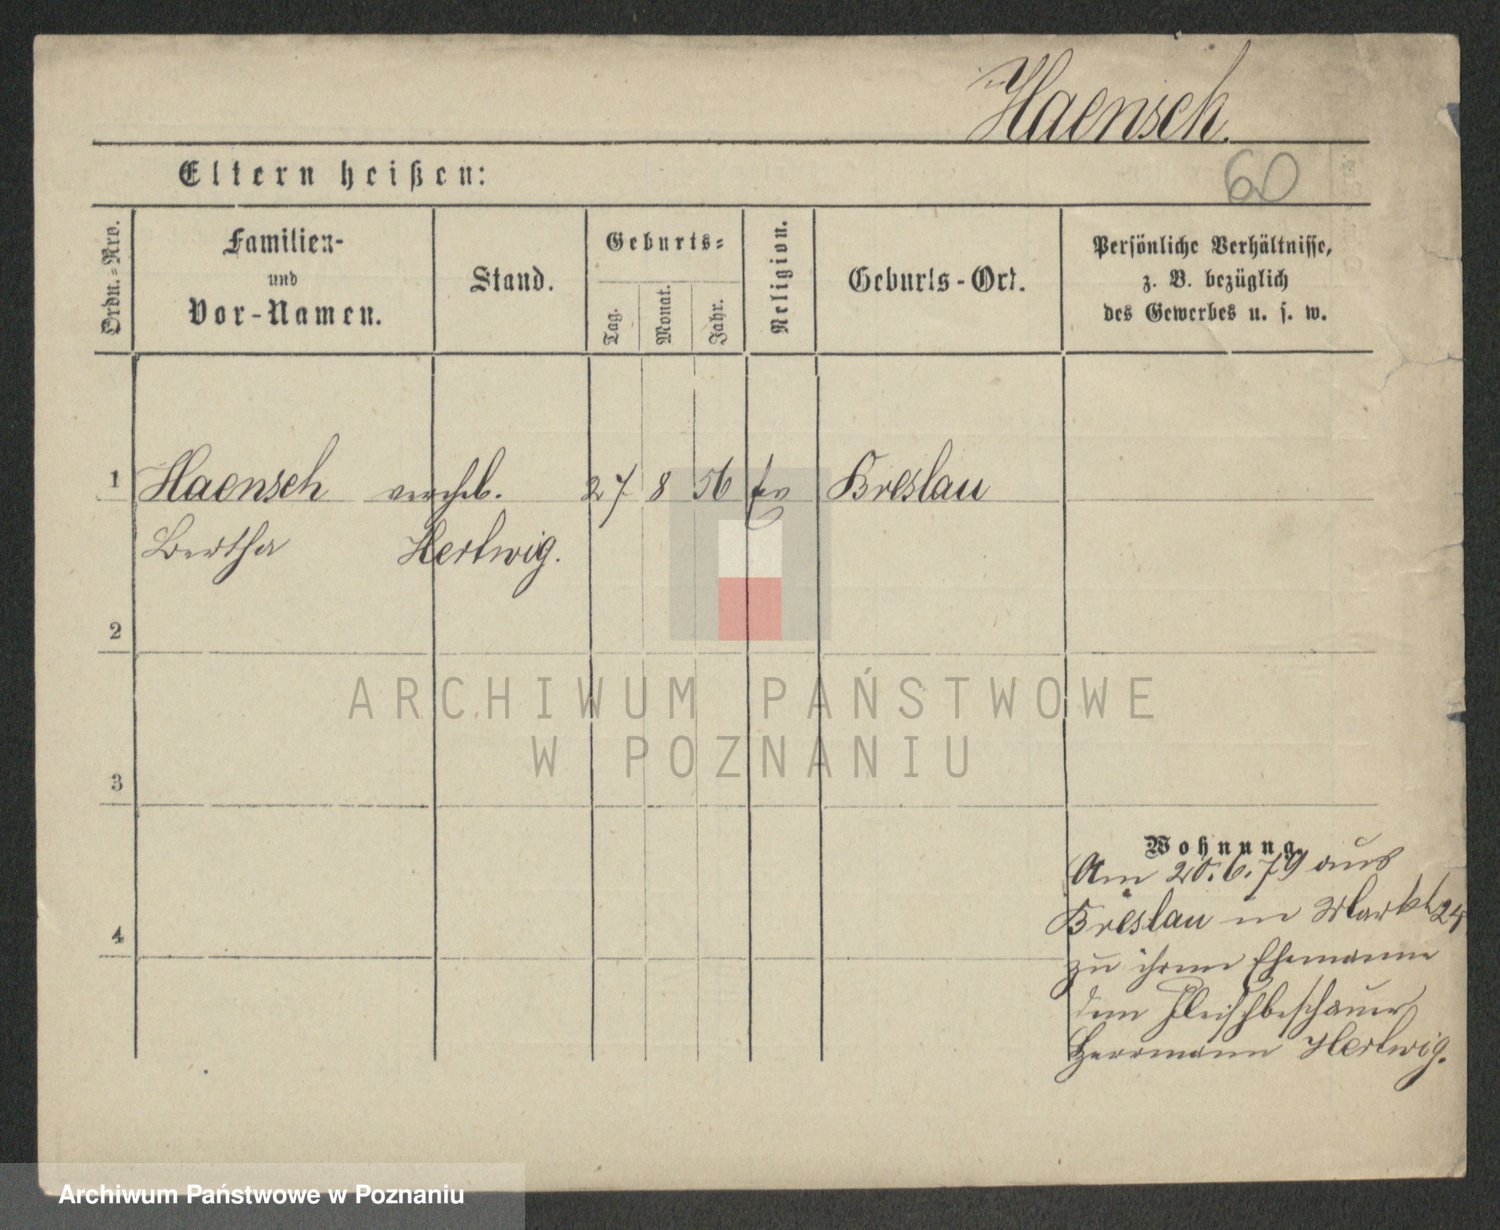 Haensch.
60
Eltern heißen:
Ordn.-Nro.
Familien-
und
Vor-Namen.
Stand.
Geburts-
Tag.
Monat.
Jahr.
Religion.
Geburts-Ort.
Persönliche Verhältnisse,
z. B. bezüglich
des Gewerbes u. s. w.
1 Haensch verehel. 27 8 56 Ev Breslau
Bertha Hertwig.
2
3
4
ARCHIWUM PAŃSTWOWE
W POZNANIU
Wohnung.
Am 20.6.79 aus
Breslau in Markt 24
zu ihrem Ehemanne
dem Fleischbeschauer
Herrmann Hertwig.
Archiwum Państwowe w Poznaniu